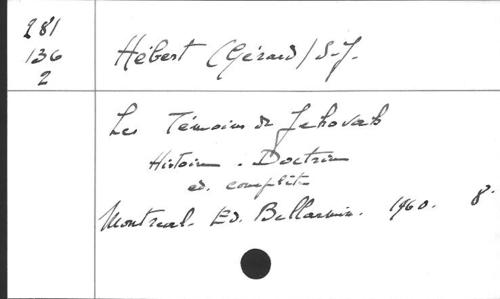 281
136
2
Hébert (Gérard) S.J.
Les Témoins de Jehovah
Histoire. Doctrine
ed. complète
Montreal. Ed. Bellarmin. 1960. 8°